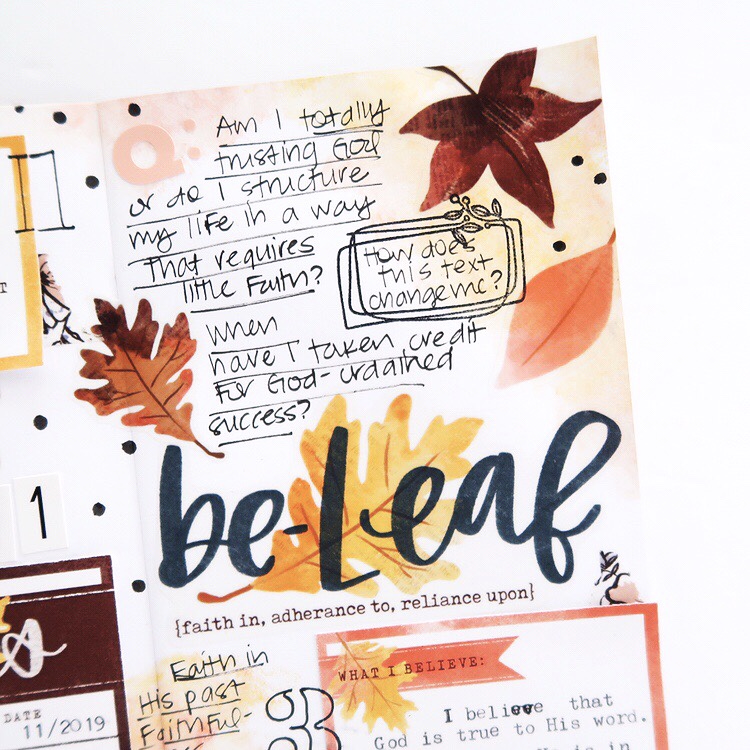 Q:
Am I totally
trusting God
or do I structure
my life in a way
that requires
little Faith?
How does
this text
change me?
When
have I taken credit
for God-ordained
success?
be-Leaf
{faith in, adherance to, reliance upon}
Faith in
His past
Faithful-
WHAT I BELIEVE:
I believe that
God is true to His word.
1
DATE
11/2019